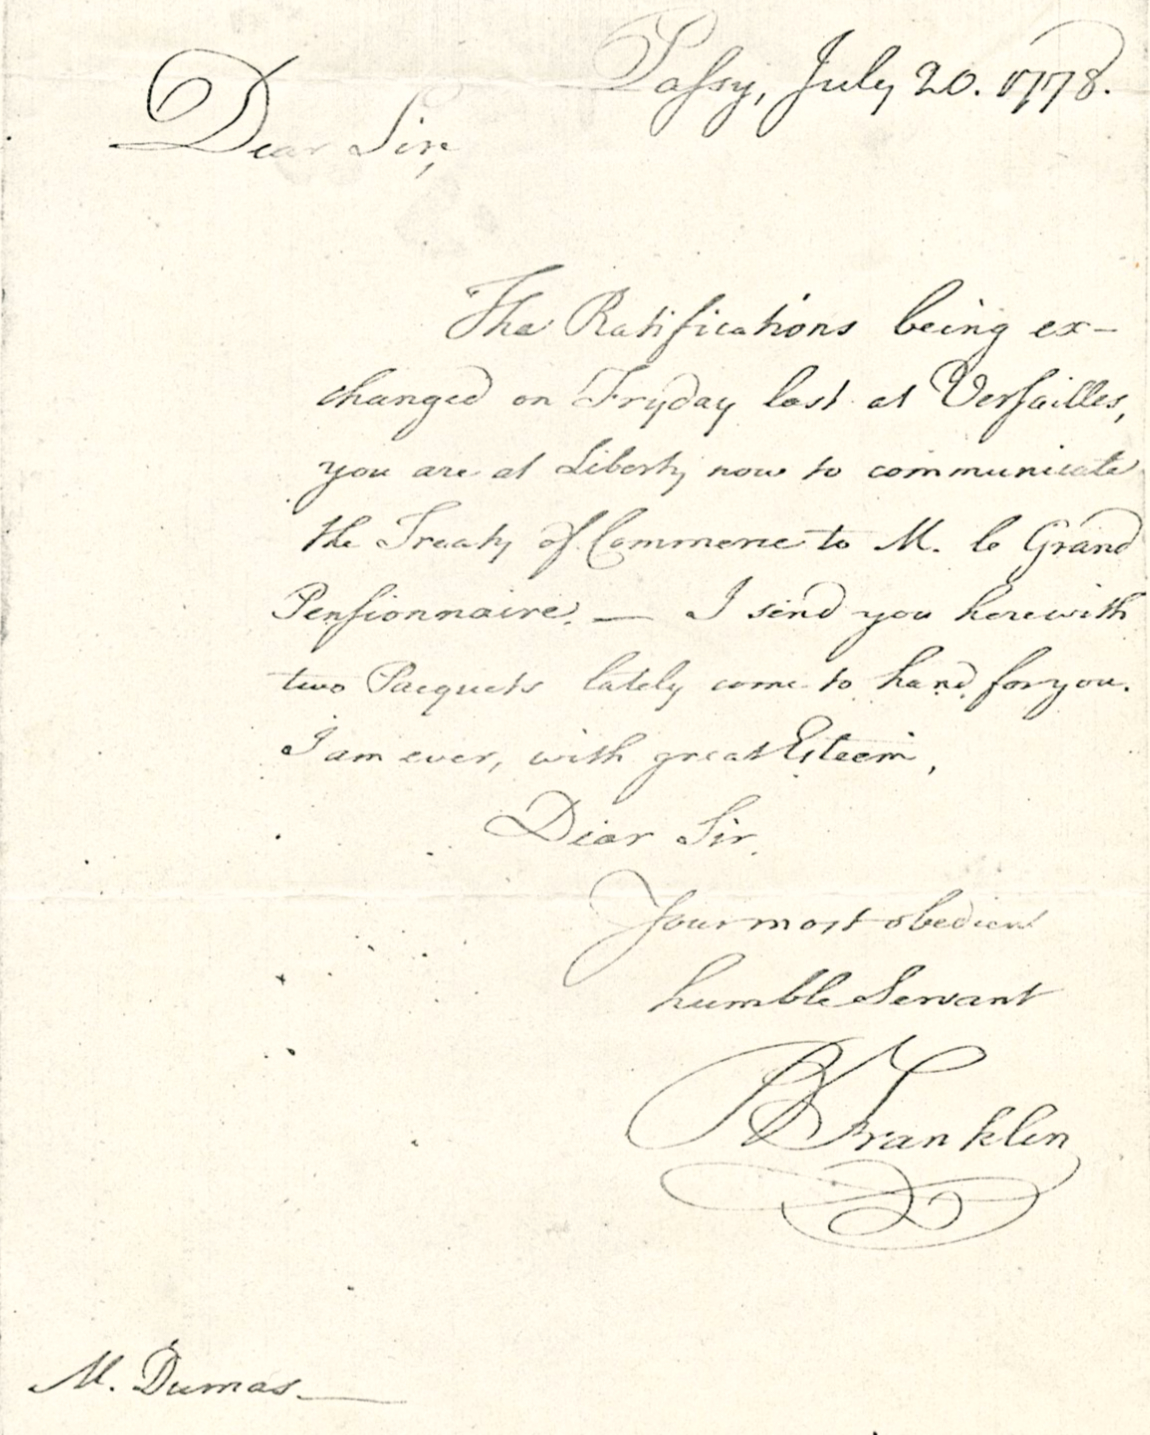 Passy, July 20. 1778.
Dear Sir,
The Ratifications being ex-
changed on Fryday last at Versailles,
you are at Liberty now to communicate
the Treaty of Commerce to M. le Grand
Pensionnaire. — I send you herewith
two Pacquets lately come to hand for you.
I am ever, with great Esteem,
Dear Sir,
Your most obedient
humble Servant
B Franklin
M. Dumas.